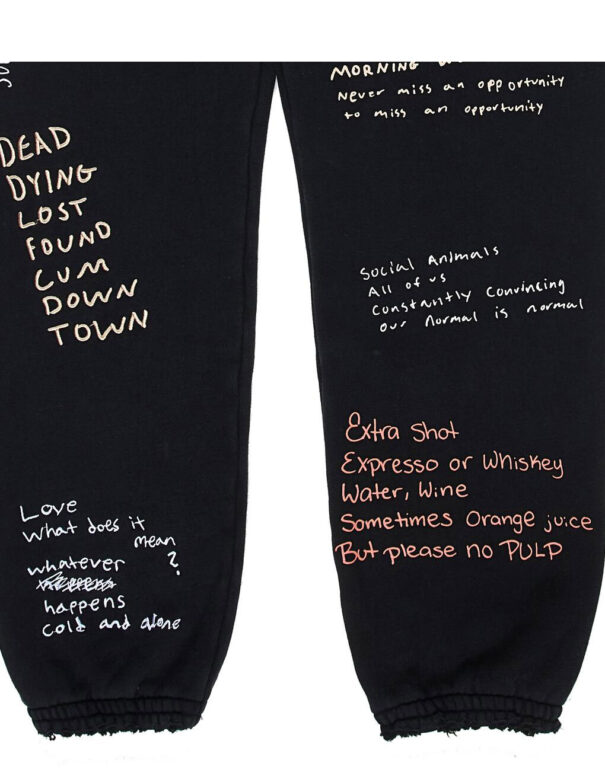 DEAD
DYING
LOST
FOUND
CUM
DOWN
TOWN
Love
What does it
mean
whatever ?
happens
cold and alone
MORNING
Never miss an opportunity
to miss an opportunity
Social Animals
All of us
Constantly Convincing
our Normal is normal
Extra Shot
Expresso or Whiskey
Water, Wine
Sometimes Orange juice
But please no PULP